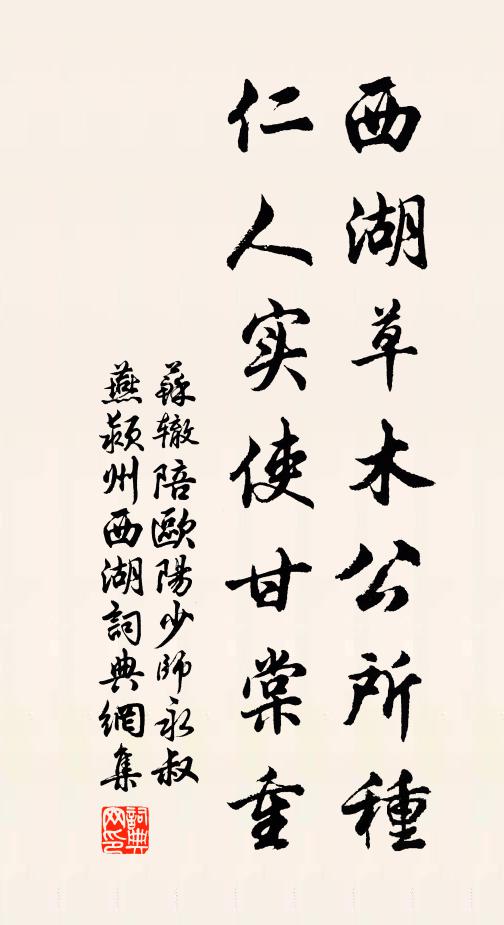 西湖草木公所種
仁人实使甘棠重
蘇辙陪歐陽少師永叔
燕颍州西湖詞典網集
詞典网印